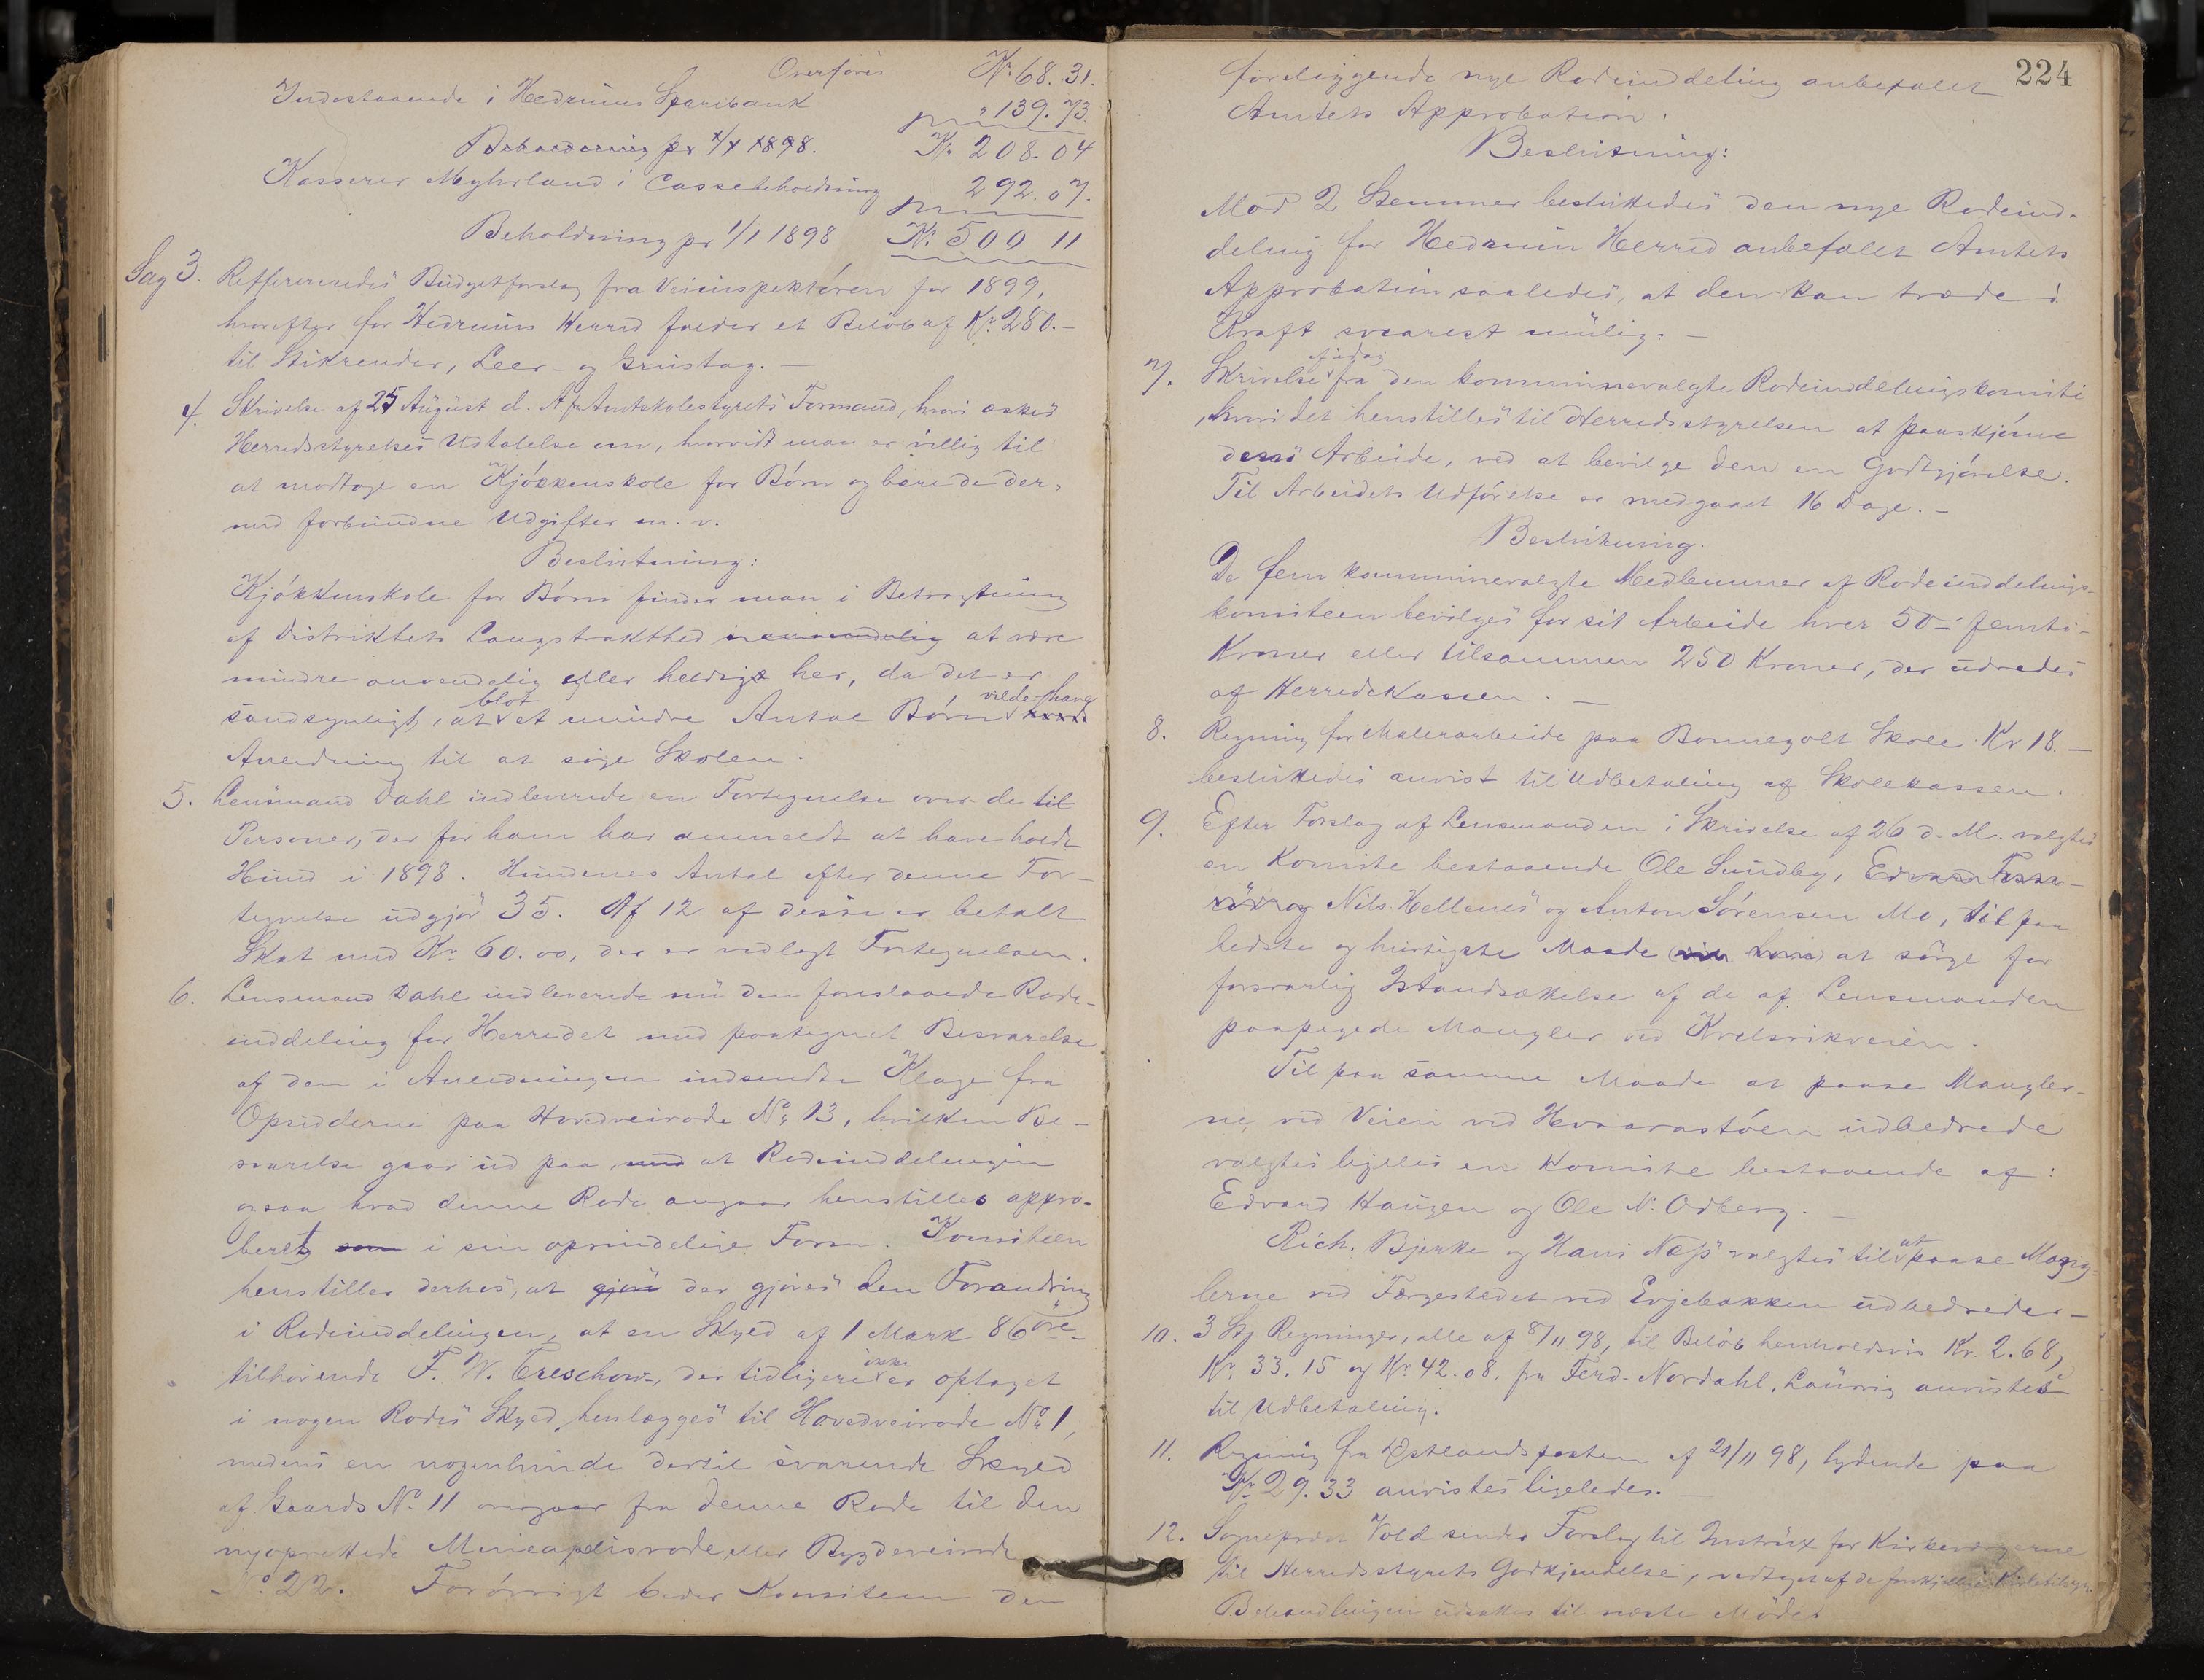 Overføres Kr. 68.31.
Indestaaende i Hedrums Sparebank " 139.73.
Beholdning pr 1/1 1898. Kr. 208.04
Kasserer Myhrland i Cassebeholdning 292.07.
Beholdning pr 1/1 1898 Kr. 500 11
Sag 3. Reffereredes Budgetforslag fra Veiinspektøren for 1899,
hvorefter for Hedrums Herred falder et Beløb af Kr. 280.-
til Stikrender, Leer- og Grustag. -
4. Skrivelse af 25 August d. A. fra Amtskolestyrets Formand, hvori æskes
Herredsstyrelses Udtalelse om, hvorvidt man er villig til
at modtage en Kjøkkenskole for Børn og bære de der-
med forbundne Udgifter m. v.
Beslutning:
Kjøkkenskole for Børn finder man i Betragtning
af Distriktets Langstrakthed uanvendelig at være
mindre anvendelig eller heldige her, da det er
sandsynligt, at blot et mindre Antal Børn vilde have
Anledning til at søge Skolen.
5. Lensmand Dahl indleverede en Fortegnelse over de til
Personer, der for ham har anmeldt at have holdt
Hund i 1898. Hundenes Antal efter denne For-
tegnelse udgjør 35. Af 12 af disse er betalt
Skat med Kr. 60.00, der er vedlagt Fortegnelsen.
6. Lensmand Dahl indleverede nu den foreslaaede Rode-
inddeling for Herredet med paategnet Besvarelse
af den i Anledningen indsendte Klage fra
Opsidderne paa Hovedveirode No. 13, hvilken Be-
svarelse gaar ud paa med at Rodeinddelingen
ogsaa hvad denne Rode angaar henstilles appro-
beret som i sin oprindelige Form. Komiteen
henstiller derhos, at gjør der gjøres den Forandring
i Rodeinddelingen, at en Skyld af 1 Mark 86 øre -
tilhørende F. W. Treschow -, der tidligere ikke er optaget
i nogen Rodes Skyld, henlægges til Hovedveirode No. 1,
medens en nogenlunde dertil svarende Skyld
af Gaards No. 11 overgaar fra denne Rode til den
nyoprettede Mineapolisrode, eller Bygdeveirode
No. 22. Forøvrigt beder Komiteen den
224
foreliggende nye Rodeinddeling anbefalet
Amtets Approbation.
Beslutning:
Mod 2 Stemmer besluttedes den nye Rodeind-
deling for Hedrum Herred anbefalet Amtets
Approbation saaledes, at den kan træde i
Kraft snarest mulig. -
7. Skrivelse af idag fra den kommunevalgte Rodeinddelingskomite
, hvori det henstilles til Herredsstyrelsen at paaskjønne
dens Arbeide, ved at bevilge den en Godtgjørelse.
Til Arbeidets Udførelse er medgaaet 16 Dage. -
Beslutning.
De fem kommunevalgte Medlemmer af Rodeinddelings-
komiteen bevilges for sit Arbeide hver 50 - femti -
Kroner eller tilsammen 250 Kroner, der udredes
af Herredskassen. -
8. Regning for Malerarbeide paa Bommegolt Skole Kr 18. -
besluttedes anvist til Udbetaling af Skolekassen.
9. Efter Forslag af Lensmanden i Skrivelse af 26 d. M. valgtes
en Komite bestaaende Ole Sundby, Edvard
og Nils Hellenes og Anton Sørensen Mo, til paa
bedste og hurtigste Maade at sørge for
forsvarlig Istandsættelse af de af Lensmanden
paapegede Mangler ved Kvelsvikveien.
Til paa samme Maade at paase Mangler-
ne ved Veien ved Hvaarastøen udbedrede
valgtes ligeledes en Komite bestaaende af:
Edvard Haugen og Ole N. Odberg. -
Rich. Bjerke og Hans Næss valgtes til at paase Mang-
lerne ved Færgestedet ved Evjebakken udbedrede. -
10. 3 Stj Regninger, alle af 8/11 98, til Beløb henholdsvis Kr. 2.68,
Kr. 33.15 og Kr. 42.08, fra Ferd. Nordahl, Laurvig anvistes
til Udbetaling.
11. Regning fra Østlandsposten af 21/11 98, lydende paa
Kr. 29.33 anvistes ligeledes. -
12. Sogneprest Vold sender Forslag til Instrux for Kirkeværgerne
til Herredsstyrets Godkjendelse, vedtaget af de forskjellige Kirketilsyn.
Behandlingen udsættes til næste Møde.